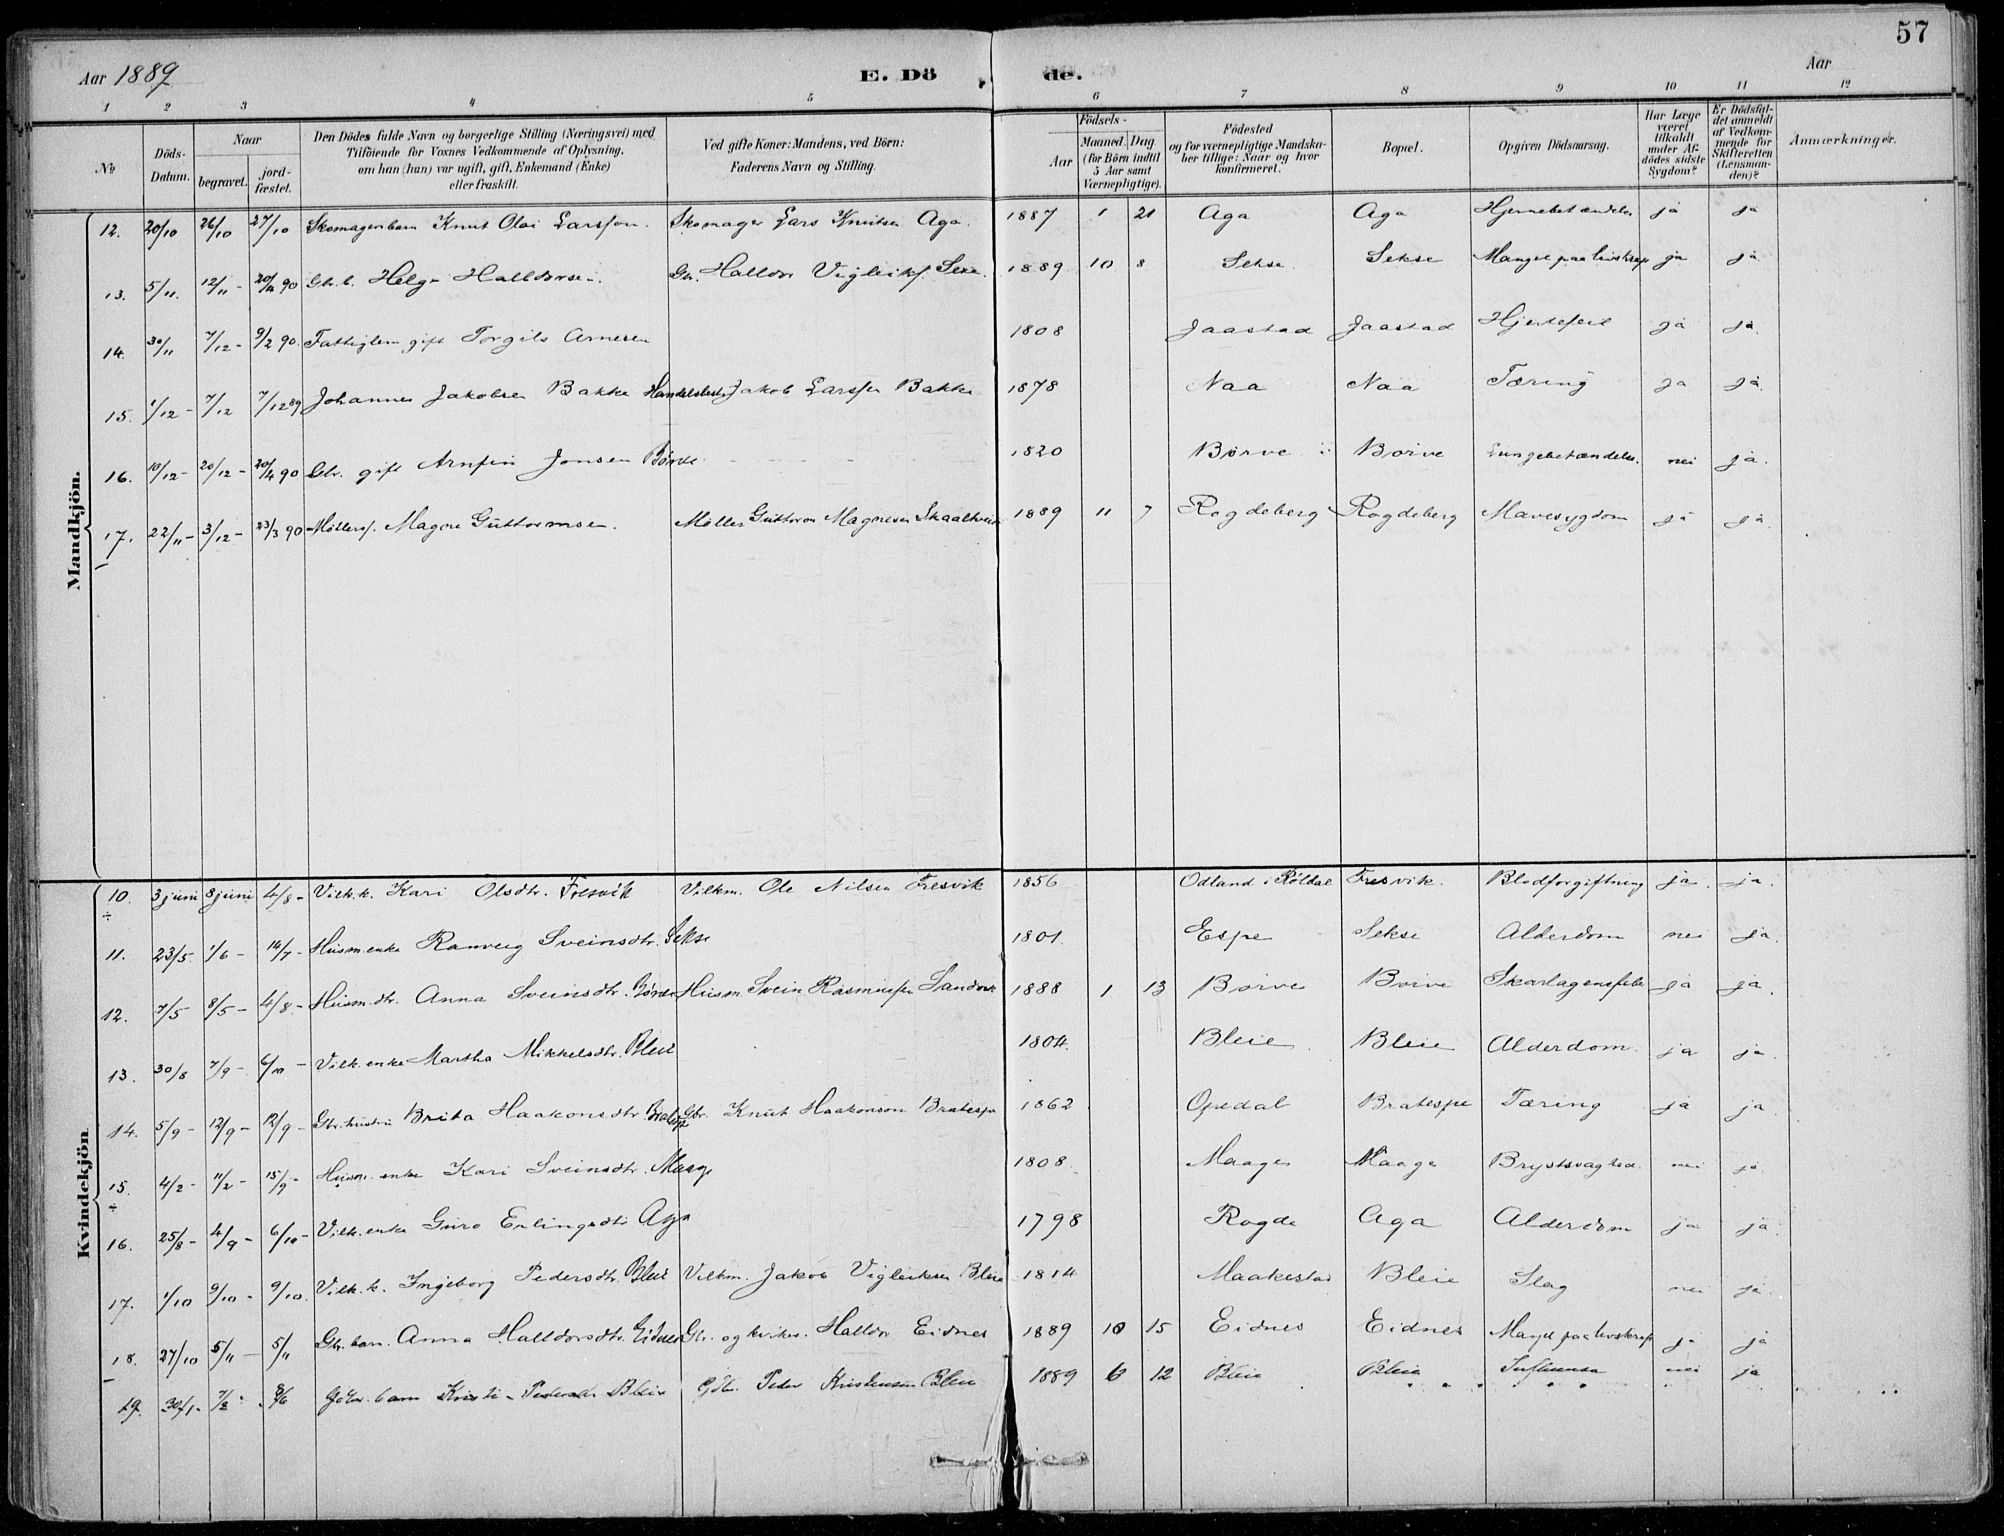 57
Aar 1889 E. Dö de. Aar
1 2 3 4 5 6 7 8 9 10 11 12
№ Döds-Datum. Naar begravet. jord-fæstet. Den Dödes fulde Navn og borgerlige Stilling (Næringsvei) med Tilföiende for Voxnes Vedkommende af Oplysning, om han (hun) var ugift, gift, Enkemand (Enke) eller fraskilt. Ved gifte Koner: Mandens, ved Börn: Faderens Navn og Stilling. Födsels- Aar Maaned. Dag (for Börn indtil 5 Aar samt Værnepligtige). Födested og for værnepligtige Mandska-ber tillige: Naar og hvor konfirmeret. Bopæl. Opgiven Dödsaarsag. Har Læge været tilkaldt under Af-dödes sidste Sygdom? Er Dödsfal-det anmeldt af Vedkom-mende for Skifteretten (Lensman-den)? Anmærkninger.
Mandkjön.
12. 20/10 26/10 27/10 Skomagerbarn Knut Olai Larssøn. Skomager Lars Knutsen Aga. 1887 1 21 Aga Aga Hjernebetændelse ja ja
13. 5/11. 12/11 - 20/4 90 Gbr. b. Helge Halldorsen. Gbr. Halldor Vigleiksf. Sexe. 1889 10 8 Sekse. Sekse Mangel paa livskraft ja ja
14. 30/11 7/12 - 9/2 90. Fattiglem gift Torgils Arnesen 1808 Jaastad Jaastad Hjertefeil ja ja.
15. 1/12 - 7/12 7/12 89 Johannes Jakobsen Bakke Handelsbestyr Jakob Larssen Bakke 1878 Naa Naa Tæring ja ja.
16. 10/12 - 20/12 - 20/4 90 Gbr. gift Arnfin Jonsen Børve 1820 Børve Børve Lungebetændelse. nei ja.
17. 22/11 - 3/12 - 23/3 90 Møllers. Magne Guttormsen. Møller Guttorm Magnesen Skaaltveit 1889 11 7 Rogdeberg Rogdeberg Mavesygdom ja ja.
Kvindekjön
10. 3 juni 8 juni 4/8 - Vilk.k. Kari Olsdtr. Fresvik Vilkm. Ole Nilsen Fresvik 1856 Odland i Røldal Fresvik. Blodforgiftning ja. ja.
11. 23/5. 1/6 - 14/7 - Husm enke Ranveig Sveinsdtr. Sekse 1801. Espe Sekse Alderdom nei ja.
12. 7/5 8/5 - 4/8 - Husm. dtr. Anna Sveinsdtr. Børve Husm. Svein Rasmussen Sandven 1888 1 13 Børve Børve Skarlagensfeber ja ja.
13. 30/8 7/9 - 6/10 - Vilk. enke Martha Mikkelsdtr. Bleie 1804. Bleie Bleie Alderdom. ja ja.
14. 5/9 - 12/9 - 12/9 - Gbr. hustru Brita Haakonsdtr Bratespe Gbr. Knut Haakonson Bratespe 1862 Opedal Bratespe Tæring ja ja.
15. 4/2 - 11/2 - 15/9 - Husm. enke Kari Sveinsdtr. Maage 1808 Maage Maage Brystsvaghed. nei ja.
16. 25/8 - 4/9 - 6/10 - Vilk. enke Guro Erlingsdtr Aga 1798 Rogde Aga Alderdom ja ja
17. 1/10 9/10 - 9/10. Vilk. k. Ingeborg Pedersdtr. Bleie Vilkm. Jakob Vigleiksen Bleie 1814 Maakestad Bleie Slag nei ja.
18. 27/10 5/11 - 5/11 Gbr. barn. Anna Halldorsdtr. Eidnes Gbr. og kirkes. Halldor Eidnes 1889 10 15 Eidnes Eidnes Mangel paa livskraft ja ja
19. 30/1 - 7/2 - 8/6 Gdbr. barn Kristi Pedersdr Bleie Gdbr. Peder Kristensen Bleie 1889 6 12 Bleie Bleie Influensa nei ja